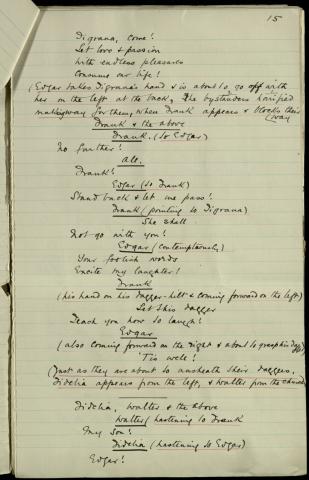 15
Digrana, come!
Let love & passion
With endless pleasures
Consume our life!
(Edgar takes Digrana's hand & is about to go off with
her on the left at the back, the bystanders horrified
making way for them, when Frank appears & blocks their
(way
Frank & the above
Frank. (to Edgar)
No further!
All.
Frank!
Edgar (to Frank)
Stand back & let me pass!
Frank (pointing to Digrana)
She shall
Not go with you!
Edgar (contemptuously)
Your foolish words
Excite my laughter!
Frank
(his hand on his dagger-hilt & coming forward on the left)
Let this dagger
Teach you how to laugh!
Edgar
(also coming forward on the right & about to grasp his dagger)
'Tis well!
(Just as they are about to unsheath their daggers,
Fidelia appears from the left, & Walter from the church)
Fidelia, Walter & the above
Walter (hastening to Frank
My son!
Fidelia (hastening to Edgar)
Edgar!